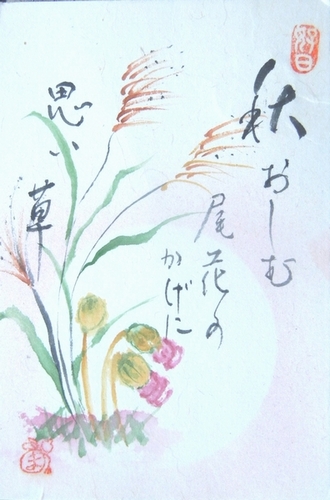 秋おしむ
尾花の
かげに
思い草